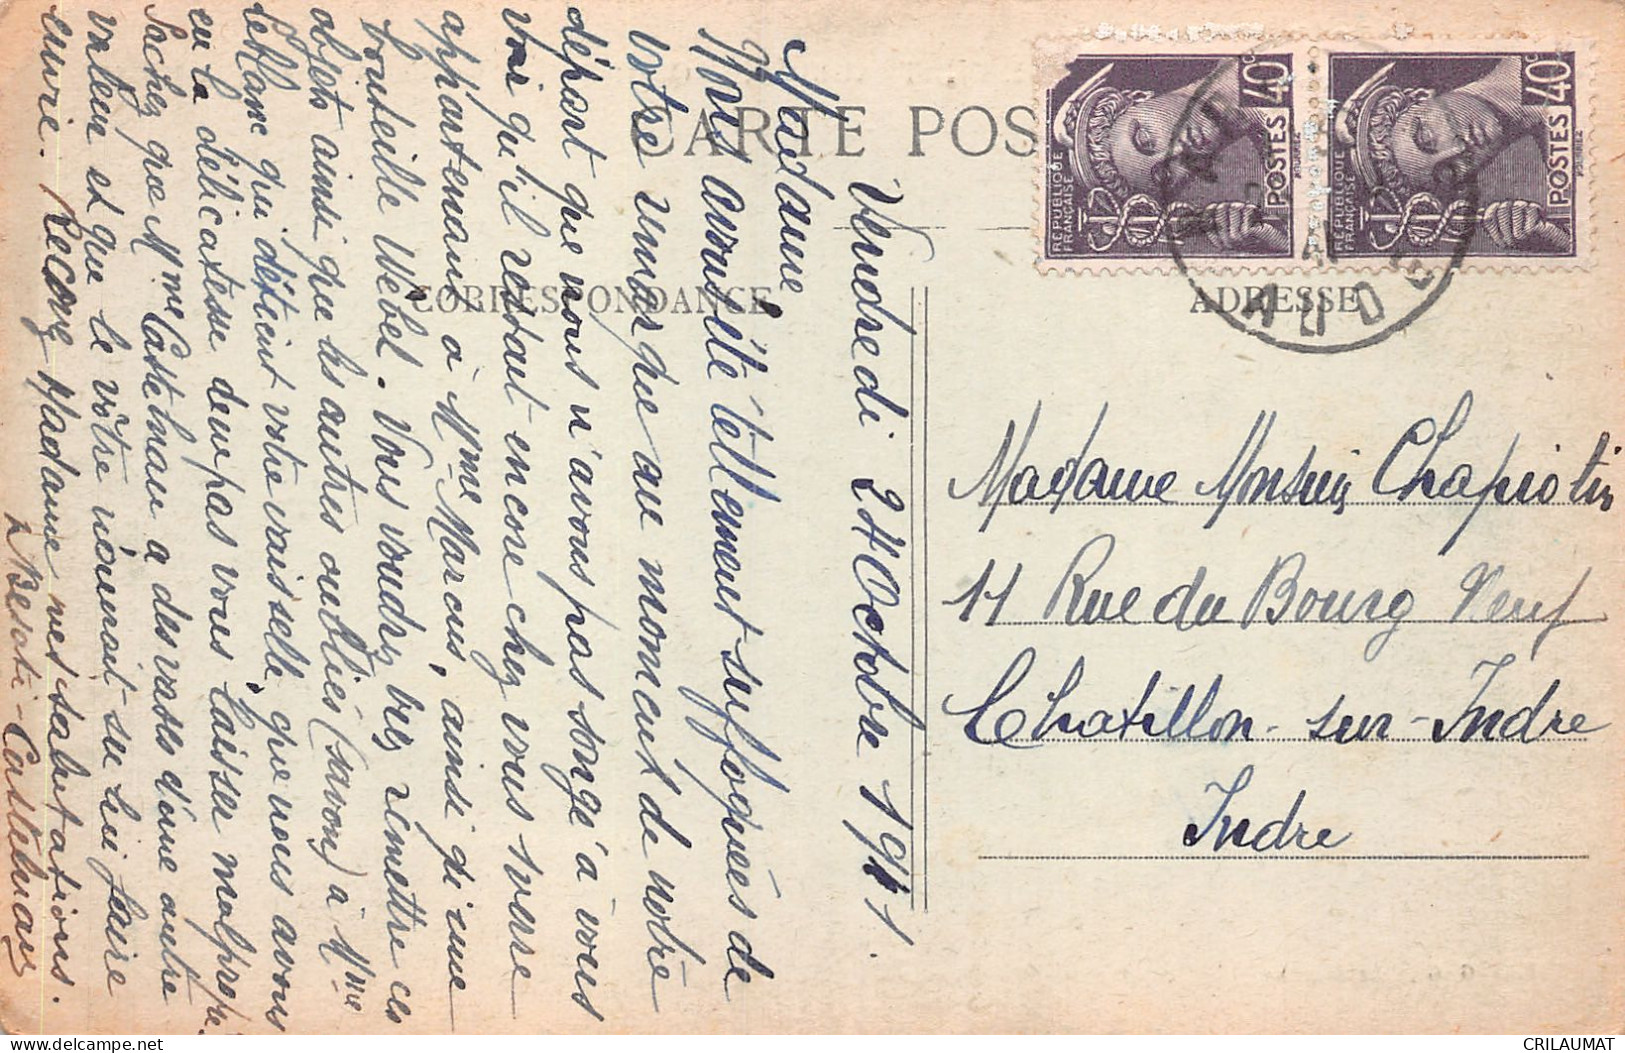 CARTE POS
CORRESPONDANCE
ADRESSE
RÉPUBLIQUE
FRANÇAISE
POSTES
40c
RÉPUBLIQUE
FRANÇAISE
POSTES
40c
Vendredi 24 Octobre 1941.
Madame
Nous avons été tellement suffoquées de
votre remarque au moment de notre
départ que nous n'avons pas songé à vous
dire qu'il restait encore chez vous 1 verre
appartenant à Mme Marcus, ainsi qu'une
bouteille Wébel. Vous voudrez bien remettre ces
objets ainsi que les autres oubliés (savon) à Mme
Leblanc qui détient votre vaisselle que nous avons
eu la délicatesse de ne pas vous laisser malpropre.
Sachez que Mme Castelnau a des vases d'une autre
valeur et que le vôtre n'aurait su lui faire
envie. Recevez Madame mes salutations.
Besati-Castelnau
Madame Chapiotin
11 Rue du Bourg Neuf
Chatillon-sur-Indre
Indre
CRILAUMAT